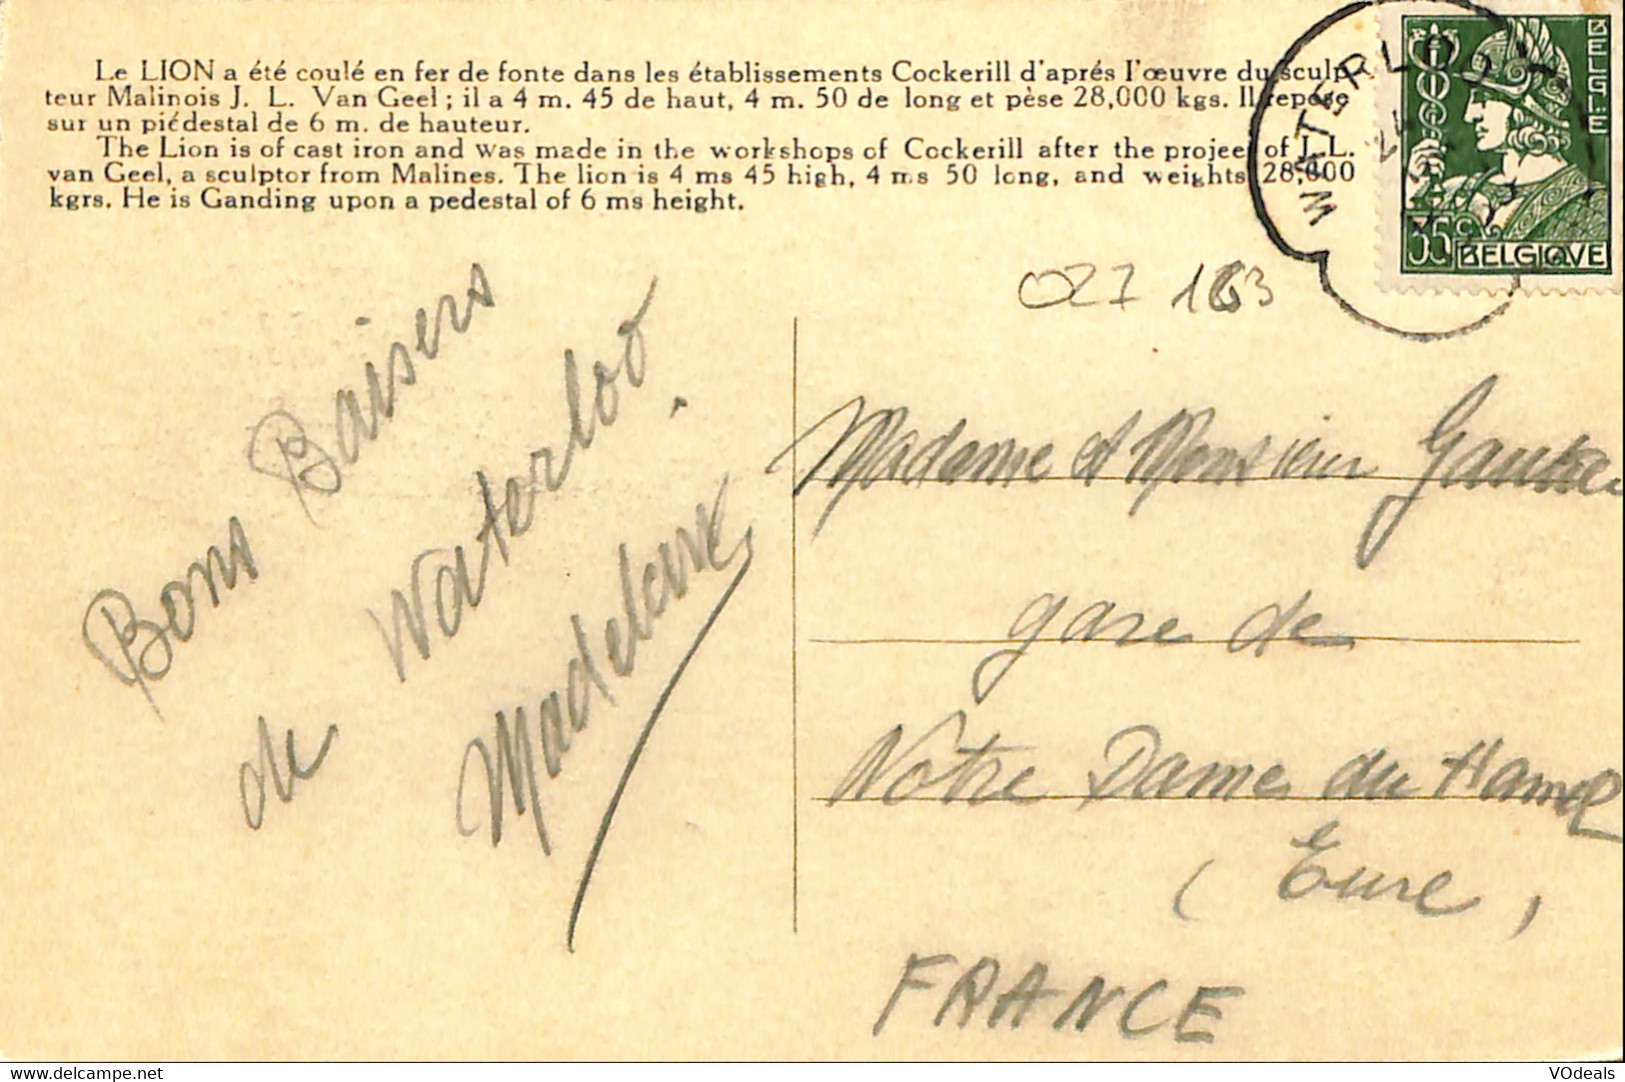 Le LION a été coulé en fer de fonte dans les établissements Cockerill d'aprés l'œuvre du sculp-
teur Malinois J. L. Van Geel ; il a 4 m. 45 de haut, 4 m. 50 de long et pèse 28,000 kgs. Il repose
sur un piédestal de 6 m. de hauteur.
The Lion is of cast iron and was made in the workshops of Cockerill after the projeet of J. L.
van Geel, a sculptor from Malines. The lion is 4 ms 45 high, 4 ms 50 long, and weights 28,000
kgrs. He is Ganding upon a pedestal of 6 ms height.
WATERLOO
BELGIE
35c
BELGIQVE
027 163
Bons Baisers
de Waterloo.
Madeleine
Madame et Monsieur
gare de
Notre Dame du Hamel
(Eure)
FRANCE
www.delcampe.net
VOdeals